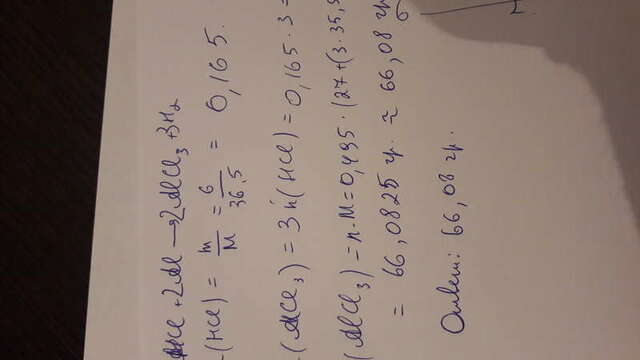 HCl + 2Al → 2AlCl₃ + 3H₂
(HCl) = m/M = 6/36,5 = 0,165.
(AlCl₃) = 3n(HCl) = 0,165 · 3 =
(AlCl₃) = n·M = 0,495 · (27 + (3·35,5
= 66,0825 гр. ≈ 66,08 гр
Ответ: 66,08 гр.